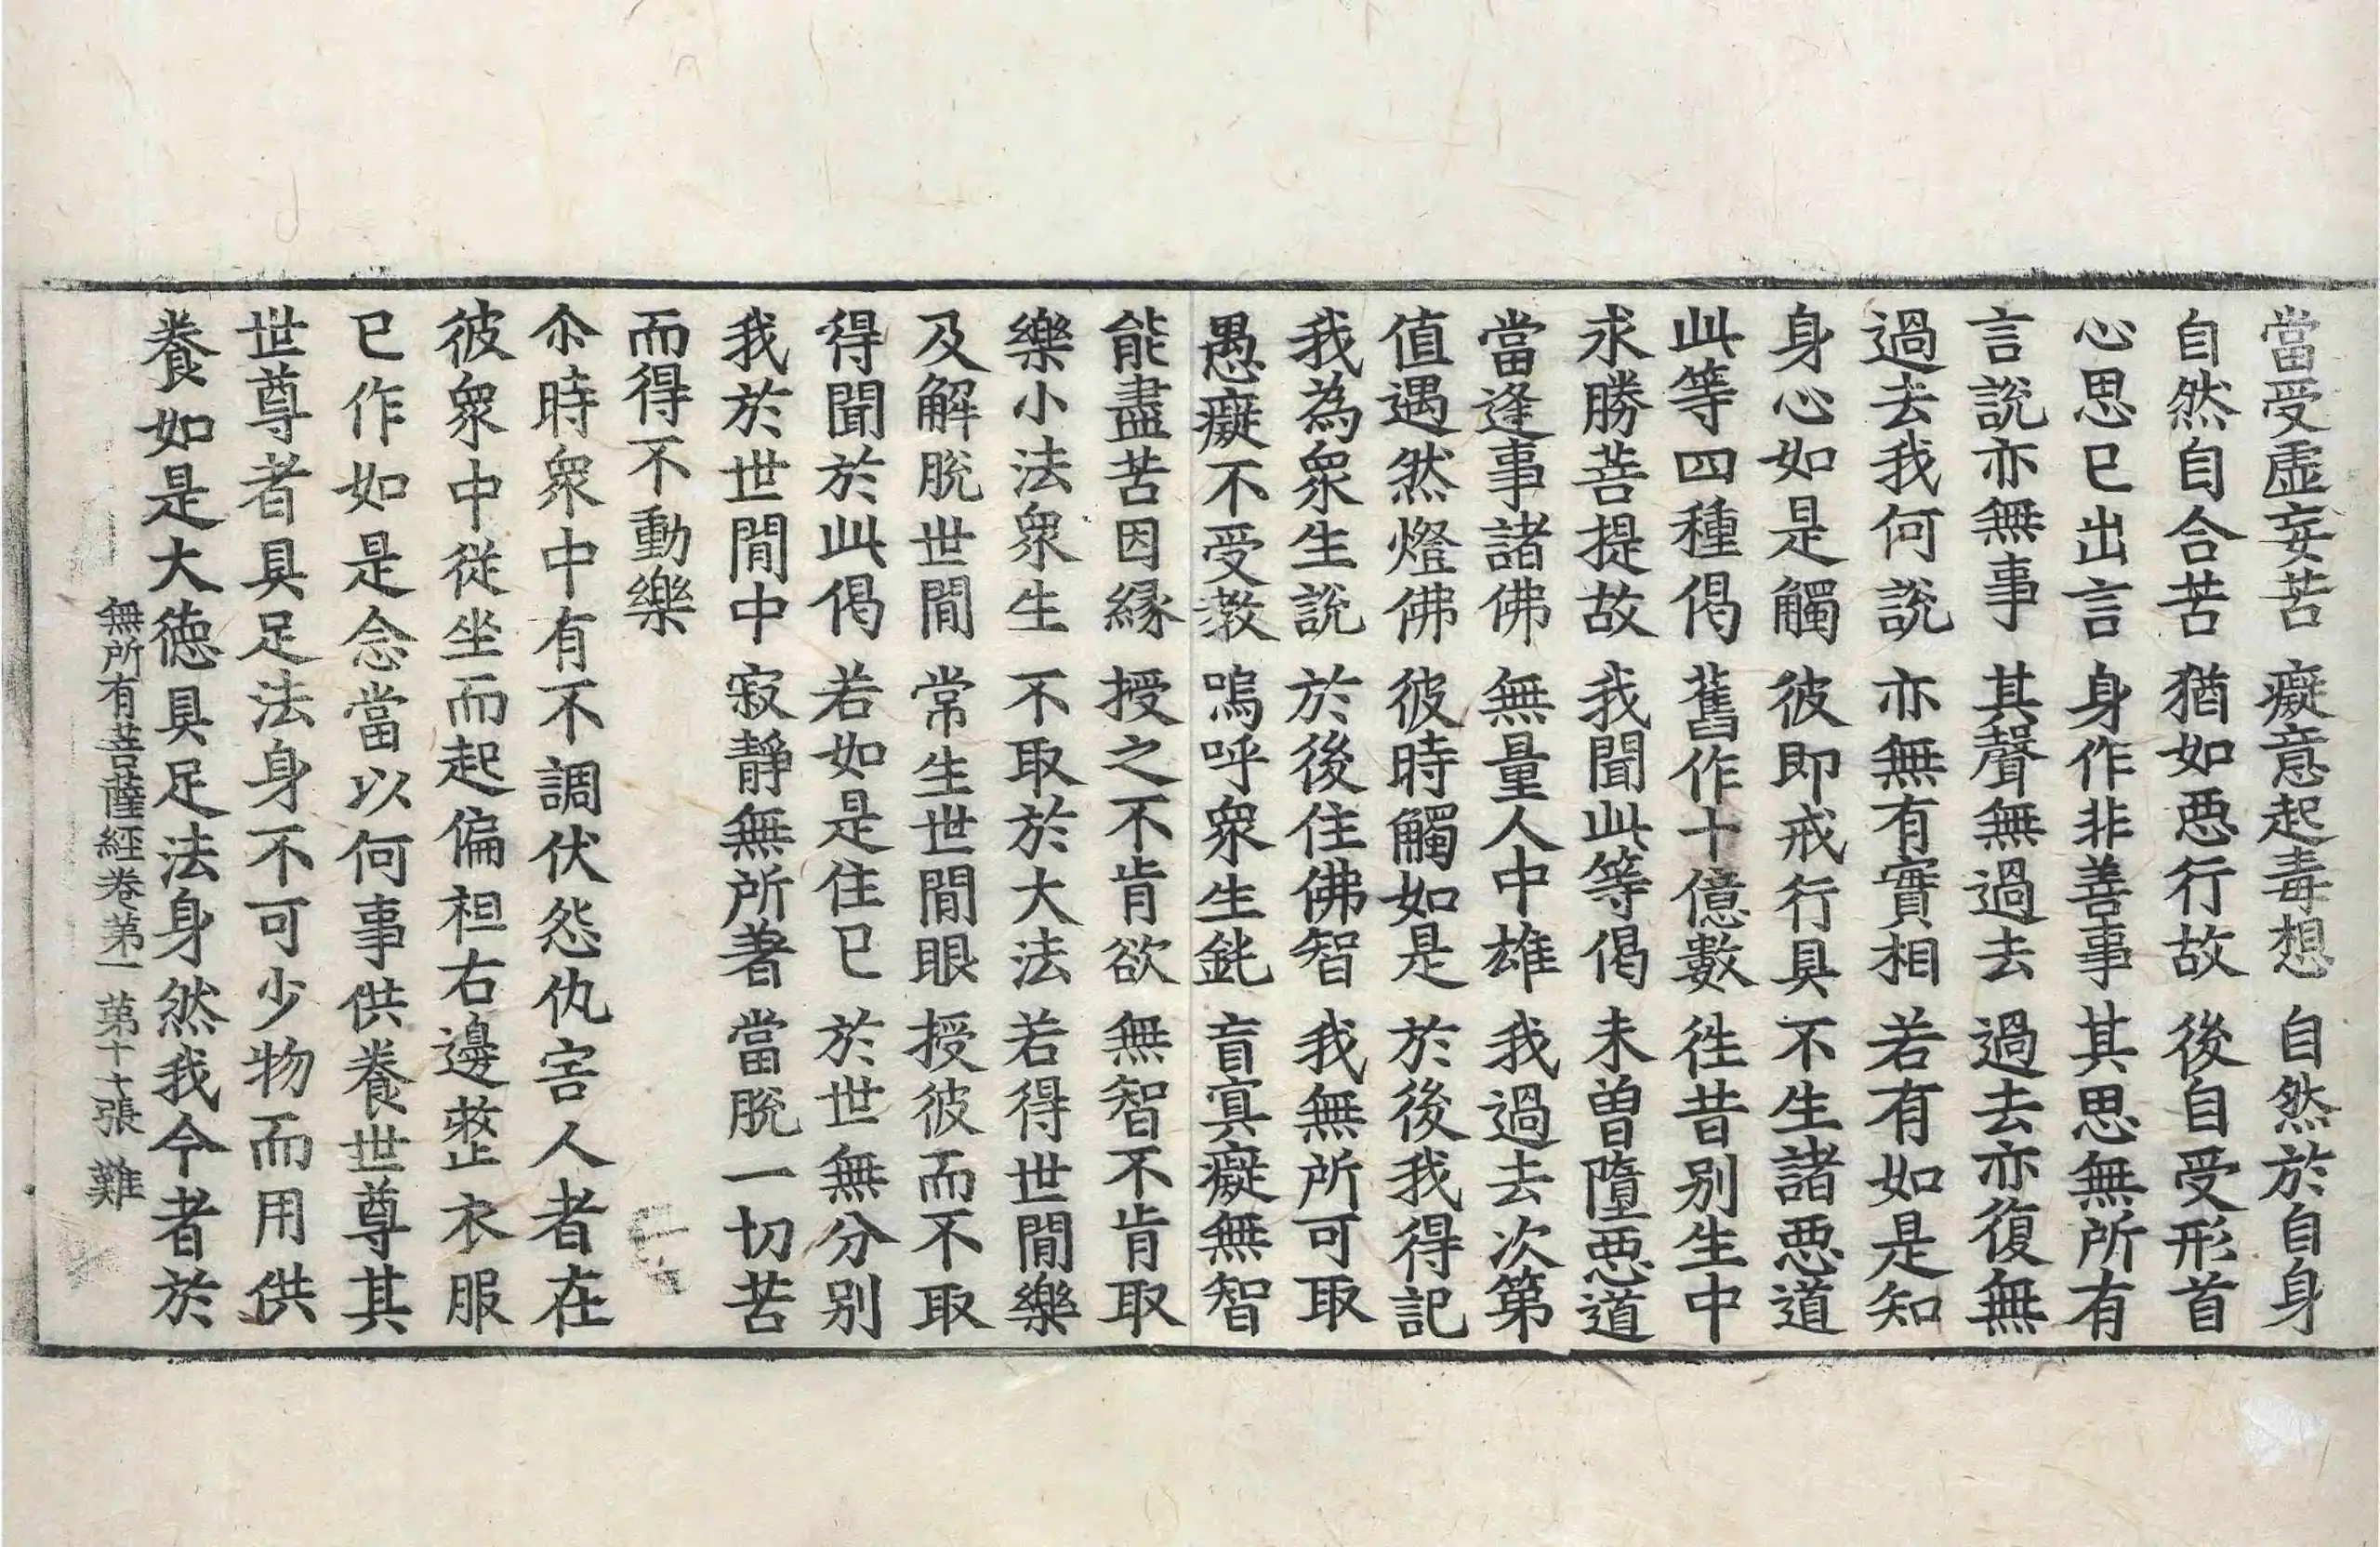 當受虛妄苦　癡意起毒想　自然於自身
自然自合苦　猶如惡行故　後自受形首
心思已出言　身作非善事　其思無所有
言說亦無事　其聲無過去　過去亦復無
過去我何說　亦無有實相　若有如是知
身心如是觸　彼即戒行具　不生諸惡道
此等四種偈　舊作十億數　徃昔別生中
求勝菩提故　我聞此等偈　未曽墮惡道
當逢事諸佛　無量人中雄　我過去次第
值遇然燈佛　彼時觸如是　於後我得記
我為衆生說　於後住佛智　我無所可取
愚癡不受教　嗚呼衆生鈍　盲㝠癡無智
能盡苦因緣　授之不肯欲　無智不肯取
樂小法衆生　不取於大法　若得世間樂
及解脫世間　常生世間眼　授彼而不取
得聞於此偈　若如是住已　於世無分別
我於世間中　寂靜無所著　當脫一切苦
而得不動樂
尒時衆中有不調伏怨仇害人者在
彼衆中從坐而起偏袒右邊整衣服
已作如是念當以何事供養世尊其
世尊者具足法身不可少物而用供
養如是大德具足法身然我今者於
無所有菩薩經卷第一　第十七張　難